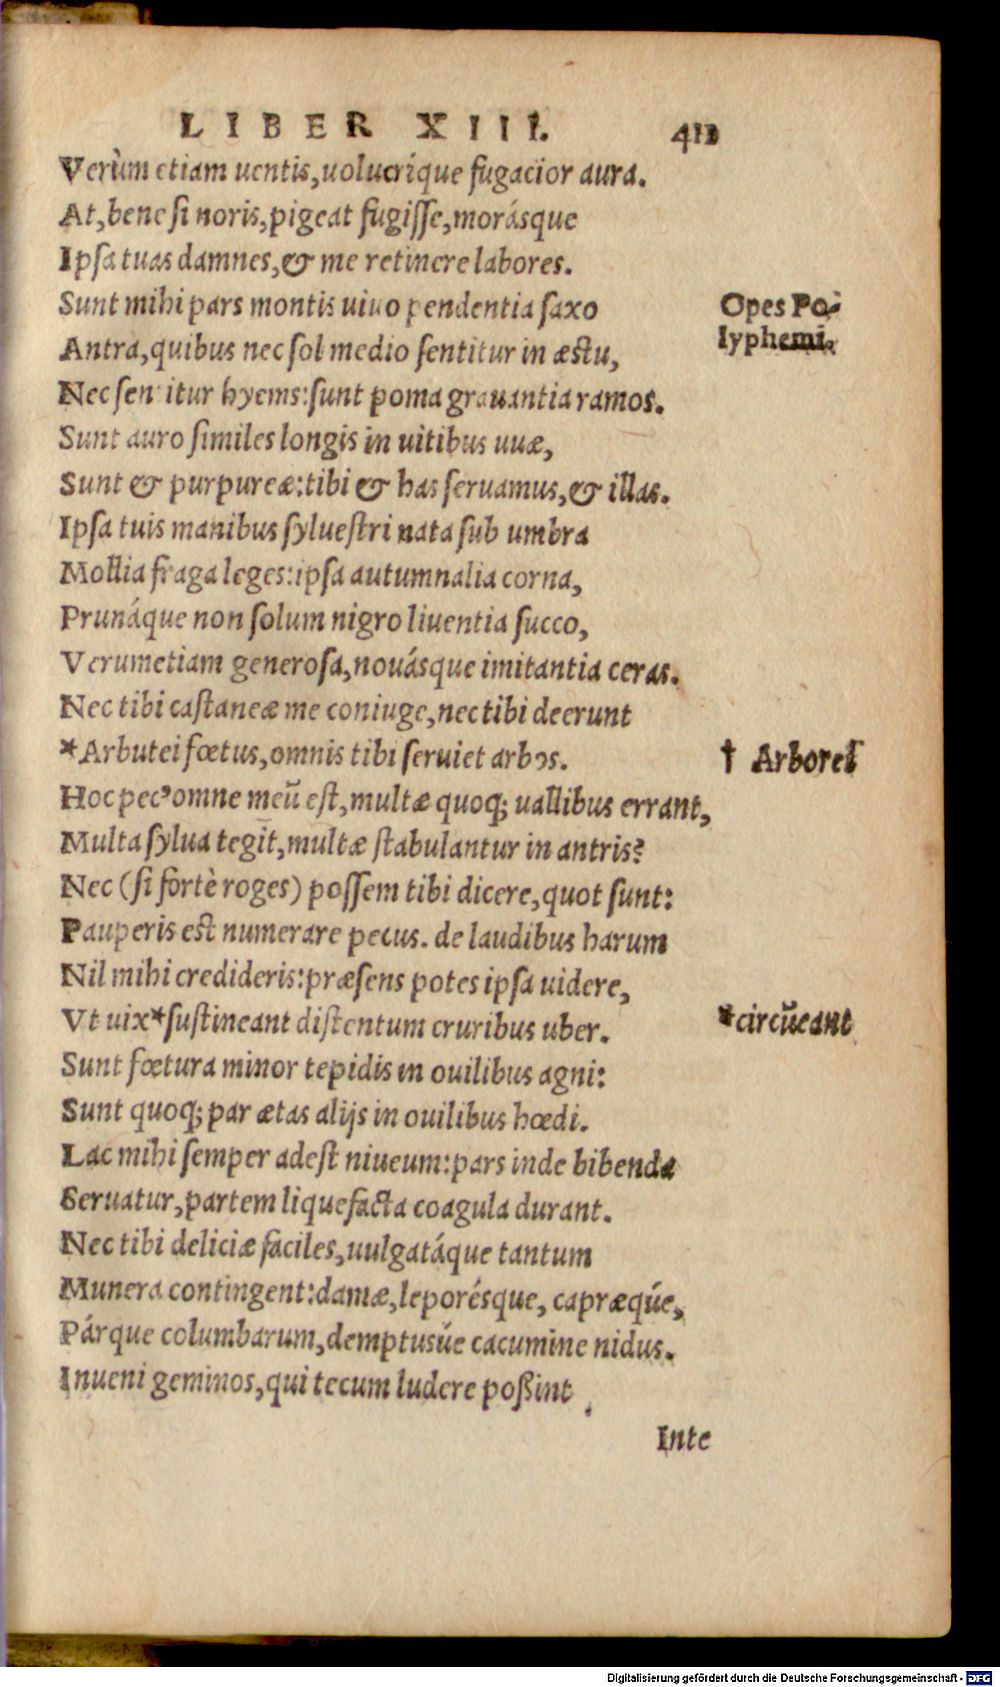 LIBER XIII. 411
Verùm etiam uentis, uolucríque fugacior aura.
At, bene si noris, pigeat fugisse, morásque
Ipsa tuas damnes, & me retinere labores.
Sunt mihi pars montis uiuo pendentia saxo
Opes Po-
Antra, quibus nec sol medio sentitur in æstu,
lyphemi.
Nec sen itur hyems: sunt poma grauantia ramos.
Sunt auro similes longis in uitibus uuæ,
Sunt & purpureæ: tibi & has seruamus, & illas.
Ipsa tuis manibus syluestri nata sub umbra
Mollia fraga leges: ipsa autumnalia corna,
Prunáque non solum nigro liuentia succo,
Verumetiam generosa, nouásque imitantia ceras.
Nec tibi castaneæ me coniuge, nec tibi deerunt
*Arbutei fœtus, omnis tibi seruiet arbos.
† Arborei
Hoc pecꝰ omne meũ est, multæ quoq; uallibus errant,
Multa sylua tegit, multæ stabulantur in antris?
Nec (si fortè roges) possem tibi dicere, quot sunt:
Pauperis est numerare pecus. de laudibus harum
Nil mihi credideris: præsens potes ipsa uidere,
Vt uix*sustineant distentum cruribus uber.
*circũeant
Sunt fœtura minor tepidis in ouilibus agni:
Sunt quoq; par ætas alijs in ouilibus hœdi.
Lac mihi semper adest niueum: pars inde bibenda
Seruatur, partem liquefacta coagula durant.
Nec tibi deliciæ faciles, uulgatáque tantum
Munera contingent: damæ, leporésque, capræqúe,
Párque columbarum, demptusúe cacumine nidus.
Inueni geminos, qui tecum ludere poßint,
Inte